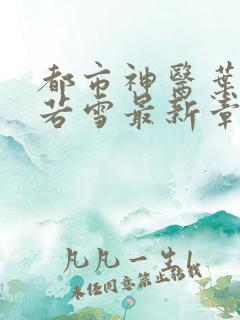 都市神醫葉
若雪最新章
凡凡一生l
未经同意禁止转载